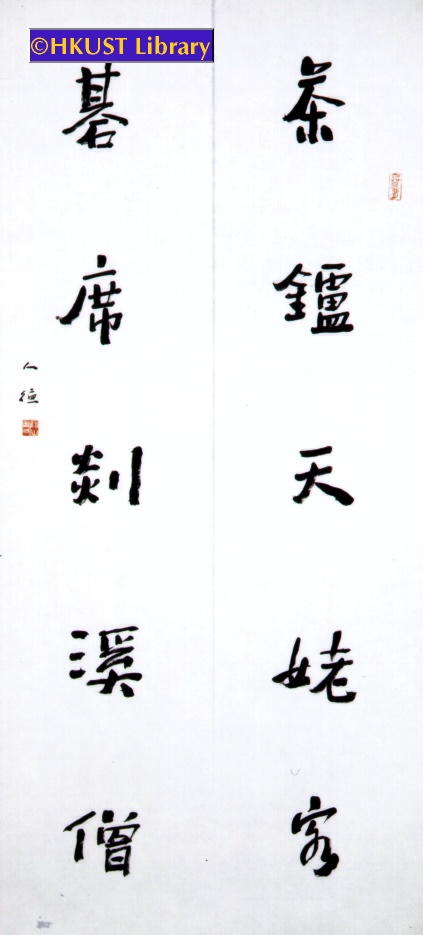 ©HKUST Library
茶鑪天姥客
碁席剡溪僧
人